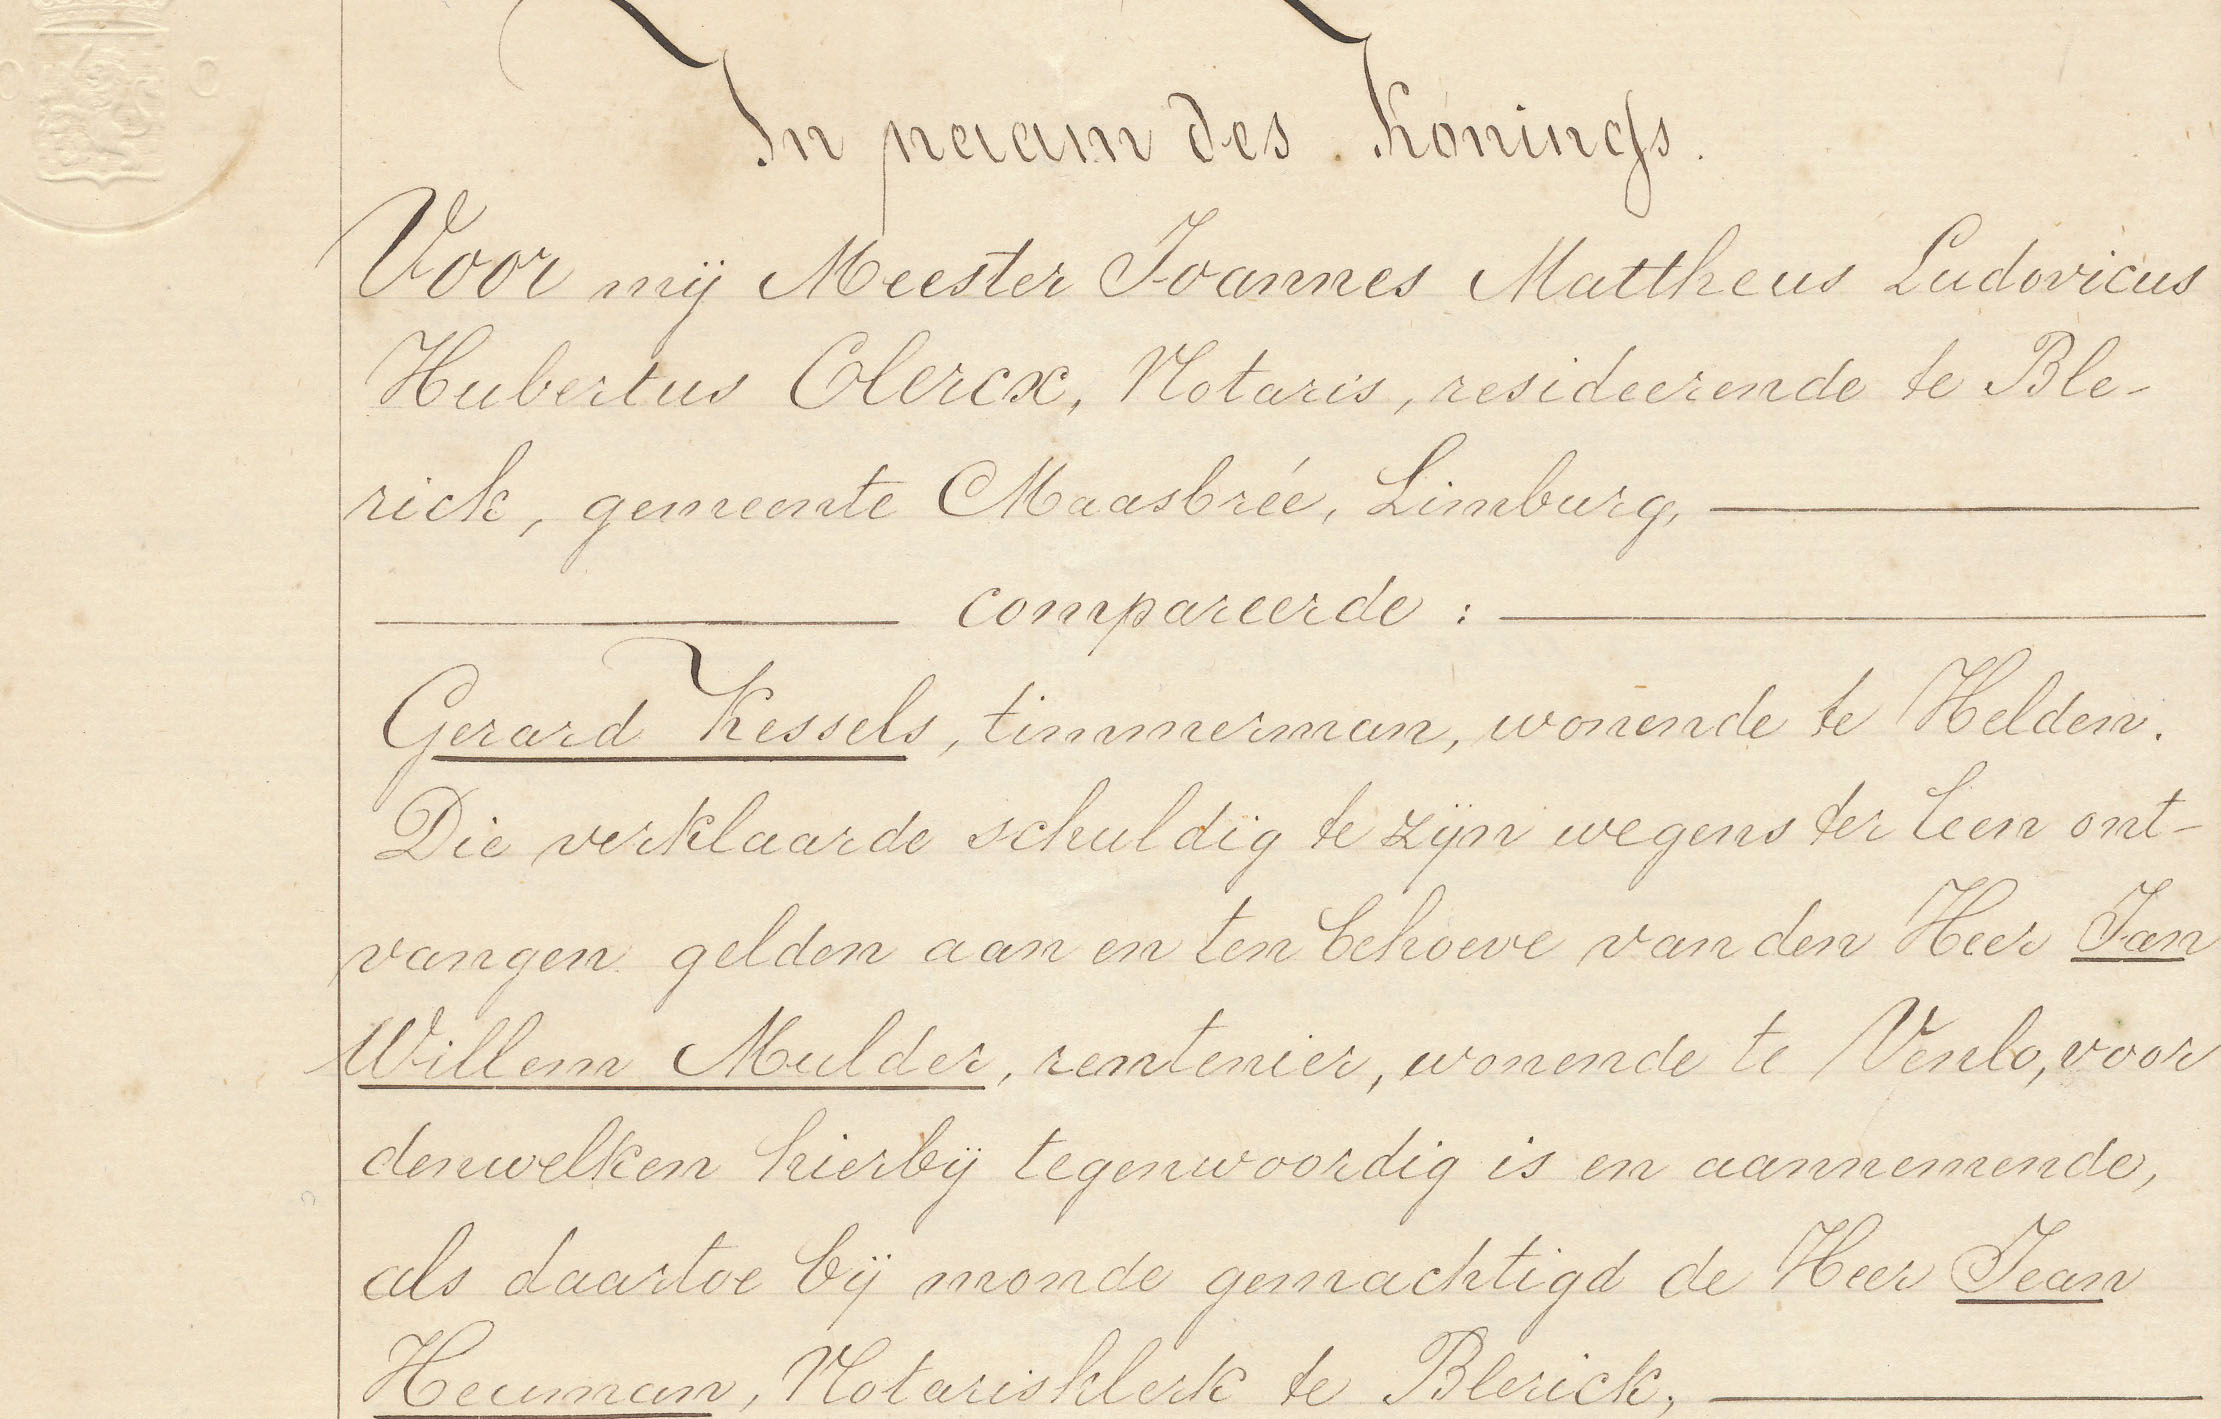 In naam des Konings.
Voor mij Meester Joannes Mattheus Ludovicus
Hubertus Clercx, Notaris, resideerende te Ble-
rick, gemeente Maasbrée, Limburg,
compareerde :
Gerard Kessels, timmerman, wonende te Helden.
Die verklaarde schuldig te zijn wegens ter leen ont-
vangen gelden aan en ten behoeve van den Heer Jan
Willem Mulder, rentenier, wonende te Venlo, voor
denwelken hierbij tegenwoordig is en aannemende,
als daartoe bij monde gemachtigd de Heer Jean
Heuman, Notarisklerk te Blerick,